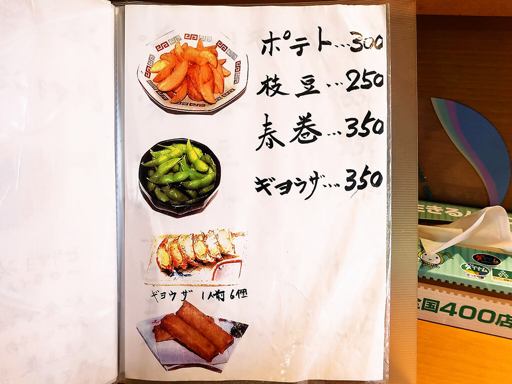 ポテト...300
枝豆...250
春巻...350
ギョウザ...350
ギョウザ 1人前6個
全国400店